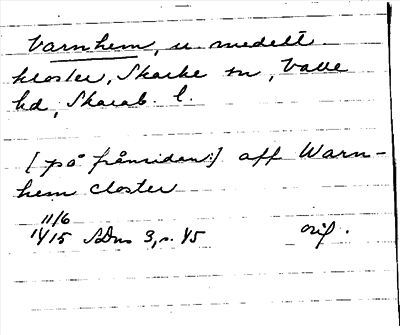 Varnhem, u. medelt.
kloster, Skarke sn, Valle
hd, Skarab. l.
[på framsidan:] aff Warn-
hem closter
11/6
1415 SDns 3, s. 45 orig.